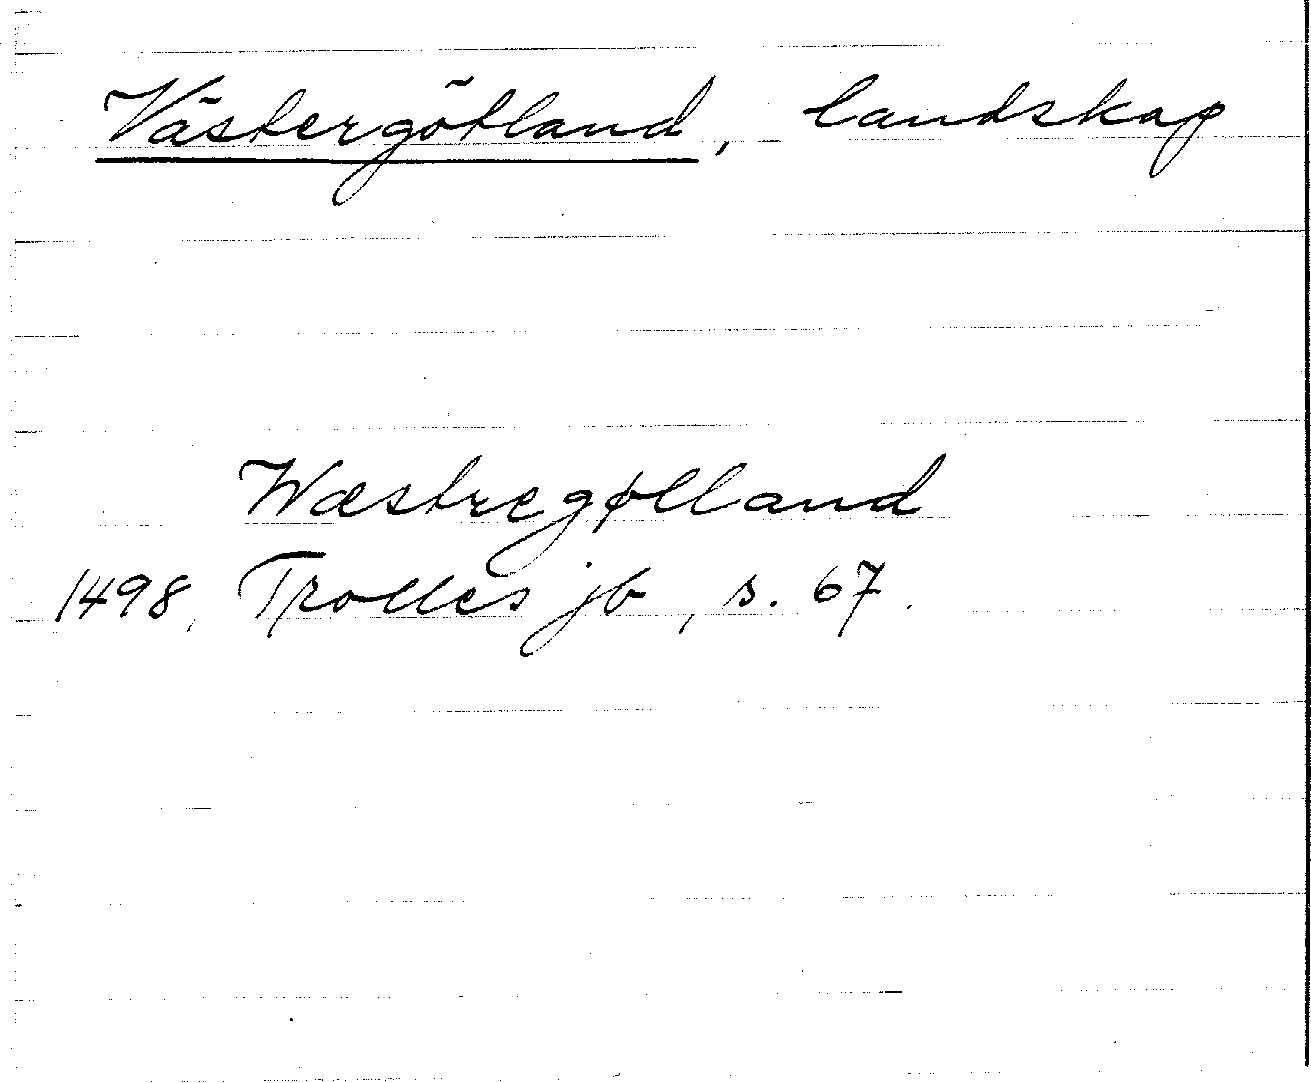 Västergötland, landskap
Wæstregøtland
1498, Trolles jb, s. 67.